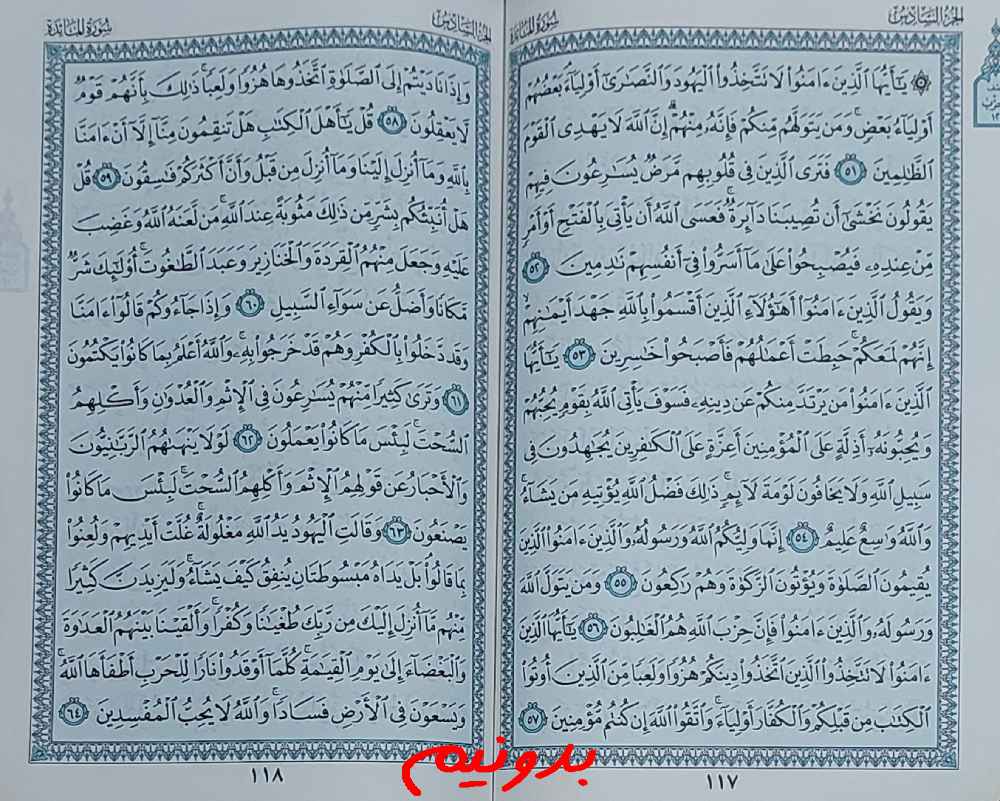 الجزء السادس
سورة المائدة
۞ يَٰٓأَيُّهَا ٱلَّذِينَ ءَامَنُوا۟ لَا تَتَّخِذُوا۟ ٱلْيَهُودَ وَٱلنَّصَٰرَىٰٓ أَوْلِيَآءَ بَعْضُهُمْ
أَوْلِيَآءُ بَعْضٍ ۚ وَمَن يَتَوَلَّهُم مِّنكُمْ فَإِنَّهُۥ مِنْهُمْ ۗ إِنَّ ٱللَّهَ لَا يَهْدِى ٱلْقَوْمَ
ٱلظَّٰلِمِينَ ٥١ فَتَرَى ٱلَّذِينَ فِى قُلُوبِهِم مَّرَضٌ يُسَٰرِعُونَ فِيهِمْ
يَقُولُونَ نَخْشَىٰٓ أَن تُصِيبَنَا دَآئِرَةٌ ۚ فَعَسَى ٱللَّهُ أَن يَأْتِىَ بِٱلْفَتْحِ أَوْ أَمْرٍ
مِّنْ عِندِهِۦ فَيُصْبِحُوا۟ عَلَىٰ مَآ أَسَرُّوا۟ فِىٓ أَنفُسِهِمْ نَٰدِمِينَ ٥٢
وَيَقُولُ ٱلَّذِينَ ءَامَنُوٓا۟ أَهَٰٓؤُلَآءِ ٱلَّذِينَ أَقْسَمُوا۟ بِٱللَّهِ جَهْدَ أَيْمَٰنِهِمْ ۙ
إِنَّهُمْ لَمَعَكُمْ ۚ حَبِطَتْ أَعْمَٰلُهُمْ فَأَصْبَحُوا۟ خَٰسِرِينَ ٥٣ يَٰٓأَيُّهَا
ٱلَّذِينَ ءَامَنُوا۟ مَن يَرْتَدَّ مِنكُمْ عَن دِينِهِۦ فَسَوْفَ يَأْتِى ٱللَّهُ بِقَوْمٍ يُحِبُّهُمْ
وَيُحِبُّونَهُۥٓ أَذِلَّةٍ عَلَى ٱلْمُؤْمِنِينَ أَعِزَّةٍ عَلَى ٱلْكَٰفِرِينَ يُجَٰهِدُونَ فِى
سَبِيلِ ٱللَّهِ وَلَا يَخَافُونَ لَوْمَةَ لَآئِمٍ ۚ ذَٰلِكَ فَضْلُ ٱللَّهِ يُؤْتِيهِ مَن يَشَآءُ ۚ
وَٱللَّهُ وَٰسِعٌ عَلِيمٌ ٥٤ إِنَّمَا وَلِيُّكُمُ ٱللَّهُ وَرَسُولُهُۥ وَٱلَّذِينَ ءَامَنُوا۟ ٱلَّذِينَ
يُقِيمُونَ ٱلصَّلَوٰةَ وَيُؤْتُونَ ٱلزَّكَوٰةَ وَهُمْ رَٰكِعُونَ ٥٥ وَمَن يَتَوَلَّ ٱللَّهَ
وَرَسُولَهُۥ وَٱلَّذِينَ ءَامَنُوا۟ فَإِنَّ حِزْبَ ٱللَّهِ هُمُ ٱلْغَٰلِبُونَ ٥٦ يَٰٓأَيُّهَا ٱلَّذِينَ
ءَامَنُوا۟ لَا تَتَّخِذُوا۟ ٱلَّذِينَ ٱتَّخَذُوا۟ دِينَكُمْ هُزُوًا وَلَعِبًا مِّنَ ٱلَّذِينَ أُوتُوا۟
ٱلْكِتَٰبَ مِن قَبْلِكُمْ وَٱلْكُفَّارَ أَوْلِيَآءَ ۚ وَٱتَّقُوا۟ ٱللَّهَ إِن كُنتُم مُّؤْمِنِينَ ٥٧
١١٧
الجزء السادس
سورة المائدة
وَإِذَا نَادَيْتُمْ إِلَى ٱلصَّلَوٰةِ ٱتَّخَذُوهَا هُزُوًا وَلَعِبًا ۚ ذَٰلِكَ بِأَنَّهُمْ قَوْمٌ
لَّا يَعْقِلُونَ ٥٨ قُلْ يَٰٓأَهْلَ ٱلْكِتَٰبِ هَلْ تَنقِمُونَ مِنَّآ إِلَّآ أَنْ ءَامَنَّا
بِٱللَّهِ وَمَآ أُنزِلَ إِلَيْنَا وَمَآ أُنزِلَ مِن قَبْلُ وَأَنَّ أَكْثَرَكُمْ فَٰسِقُونَ ٥٩ قُلْ
هَلْ أُنَبِّئُكُم بِشَرٍّ مِّن ذَٰلِكَ مَثُوبَةً عِندَ ٱللَّهِ ۚ مَن لَّعَنَهُ ٱللَّهُ وَغَضِبَ
عَلَيْهِ وَجَعَلَ مِنْهُمُ ٱلْقِرَدَةَ وَٱلْخَنَازِيرَ وَعَبَدَ ٱلطَّٰغُوتَ ۚ أُو۟لَٰٓئِكَ شَرٌّ
مَّكَانًا وَأَضَلُّ عَن سَوَآءِ ٱلسَّبِيلِ ٦٠ وَإِذَا جَآءُوكُمْ قَالُوٓا۟ ءَامَنَّا
وَقَد دَّخَلُوا۟ بِٱلْكُفْرِ وَهُمْ قَدْ خَرَجُوا۟ بِهِۦ ۚ وَٱللَّهُ أَعْلَمُ بِمَا كَانُوا۟ يَكْتُمُونَ
٦١ وَتَرَىٰ كَثِيرًا مِّنْهُمْ يُسَٰرِعُونَ فِى ٱلْإِثْمِ وَٱلْعُدْوَٰنِ وَأَكْلِهِمُ
ٱلسُّحْتَ ۚ لَبِئْسَ مَا كَانُوا۟ يَعْمَلُونَ ٦٢ لَوْلَا يَنْهَىٰهُمُ ٱلرَّبَّٰنِيُّونَ
وَٱلْأَحْبَارُ عَن قَوْلِهِمُ ٱلْإِثْمَ وَأَكْلِهِمُ ٱلسُّحْتَ ۚ لَبِئْسَ مَا كَانُوا۟
يَصْنَعُونَ ٦٣ وَقَالَتِ ٱلْيَهُودُ يَدُ ٱللَّهِ مَغْلُولَةٌ ۚ غُلَّتْ أَيْدِيهِمْ وَلُعِنُوا۟
بِمَا قَالُوا۟ ۘ بَلْ يَدَاهُ مَبْسُوطَتَانِ يُنفِقُ كَيْفَ يَشَآءُ ۚ وَلَيَزِيدَنَّ كَثِيرًا
مِّنْهُم مَّآ أُنزِلَ إِلَيْكَ مِن رَّبِّكَ طُغْيَٰنًا وَكُفْرًا ۚ وَأَلْقَيْنَا بَيْنَهُمُ ٱلْعَدَٰوَةَ
وَٱلْبَغْضَآءَ إِلَىٰ يَوْمِ ٱلْقِيَٰمَةِ ۚ كُلَّمَآ أَوْقَدُوا۟ نَارًا لِّلْحَرْبِ أَطْفَأَهَا ٱللَّهُ ۚ
وَيَسْعَوْنَ فِى ٱلْأَرْضِ فَسَادًا ۚ وَٱللَّهُ لَا يُحِبُّ ٱلْمُفْسِدِينَ ٦٤
١١٨
بدونیم